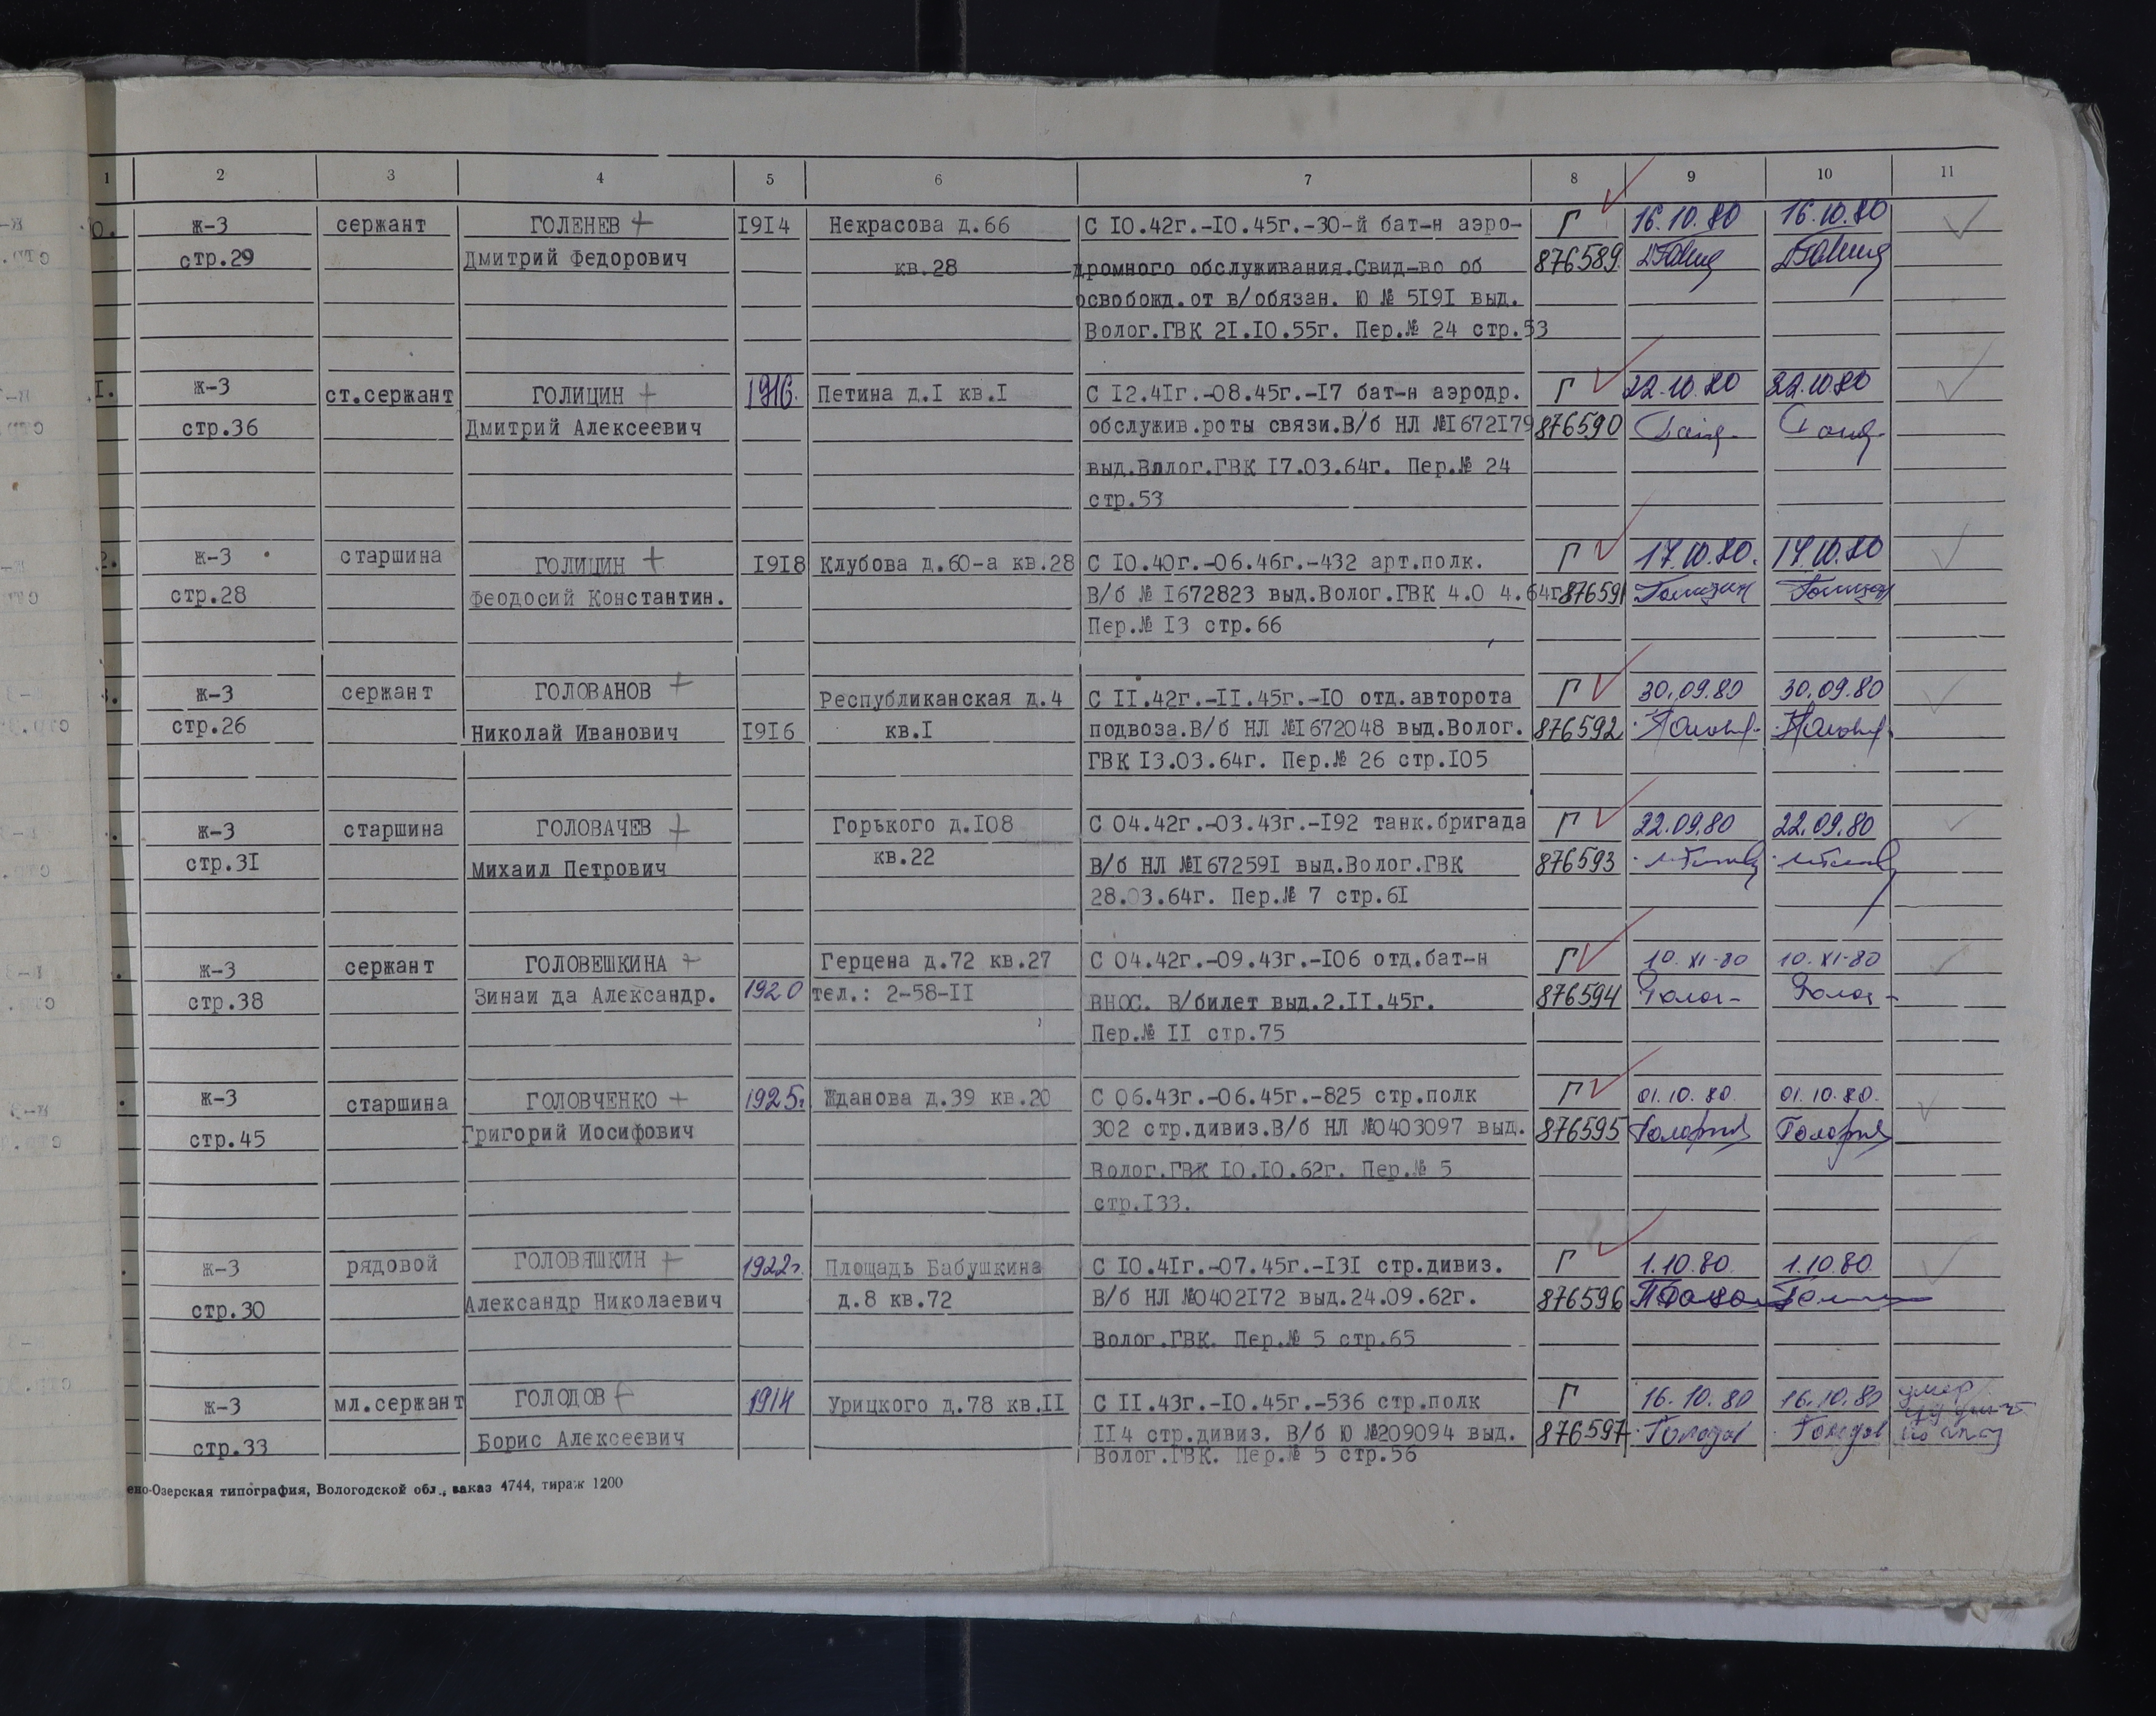 1 2 3 4 5 6 7 8 9 10 11
0. ж-3 сержант ГОЛЕНЕВ + 1914 Некрасова д.66 С 10.42г.-10.45г.-30-й бат-н аэро- Г 16.10.80 16.10.80
стр.29 Дмитрий Федорович кв.28 дромного обслуживания.Свид-во об 876589
освобожд.от в/обязан. Ю № 5191 выд.
Волог.ГВК 21.10.55г. Пер.№ 24 стр.53
1. ж-3 ст.сержант ГОЛИЦИН + 1916. Петина д.1 кв.1 С 12.41г.-08.45г.-17 бат-н аэродр. Г 22.10.80 22.10.80
стр.36 Дмитрий Алексеевич обслужив.роты связи.В/б НЛ №1672179 876590
выд.Волог.ГВК 17.03.64г. Пер.№ 24
стр.53
2. ж-3 старшина ГОЛИЦИН + 1918 Клубова д.60-а кв.28 С 10.40г.-06.46г.-432 арт.полк. Г 17.10.80. 17.10.80
стр.28 Феодосий Константин. В/б № 1672823 выд.Волог.ГВК 4.0 4.64г 876591 Голицин Голицин
Пер.№ 13 стр.66
ж-3 сержант ГОЛОВАНОВ + Республиканская д.4 С 11.42г.-11.45г.-10 отд.авторота Г 30.09.80 30.09.80
стр.26 Николай Иванович 1916 кв.1 подвоза.В/б НЛ №1672048 выд.Волог. 876592
ГВК 13.03.64г. Пер.№ 26 стр.105
ж-3 старшина ГОЛОВАЧЕВ + Горького д.108 С 04.42г.-03.43г.-192 танк.бригада Г 22.09.80 22.09.80
стр.31 Михаил Петрович кв.22 В/б НЛ №1672591 выд.Волог.ГВК 876593
28.03.64г. Пер.№ 7 стр.61
ж-3 сержант ГОЛОВЕШКИНА + Герцена д.72 кв.27 С 04.42г.-09.43г.-106 отд.бат-н Г 10.XI-80 10.XI-80
стр.38 Зинаи да Александр. 1920 тел.: 2-58-11 ВНОС. В/билет выд.2.11.45г. 876594
Пер.№ 11 стр.75
ж-3 старшина ГОЛОВЧЕНКО + 1925г. Жданова д.39 кв.20 С 06.43г.-06.45г.-825 стр.полк Г 01.10.80. 01.10.80.
стр.45 Григорий Иосифович 302 стр.дивиз.В/б НЛ №0403097 выд. 876595
Волог.ГВК 10.10.62г. Пер.№ 5
стр.133.
ж-3 рядовой ГОЛОВЯШКИН + 1922г. Площадь Бабушкина С 10.41г.-07.45г.-131 стр.дивиз. Г 1.10.80. 1.10.80
стр.30 Александр Николаевич д.8 кв.72 В/б НЛ №0402172 выд.24.09.62г. 876596
Волог.ГВК. Пер.№ 5 стр.65
ж-3 мл.сержант ГОЛОДОВ + 1914 Урицкого д.78 кв.11 С 11.43г.-10.45г.-536 стр.полк Г 16.10.80 16.10.80 умер
стр.33 Борис Алексеевич 114 стр.дивиз. В/б Ю №209094 выд. 876597 Голодов Голодов
Волог.ГВК. Пер.№ 5 стр.56
ено-Озерская типография, Вологодской обл., заказ 4744, тираж 1200